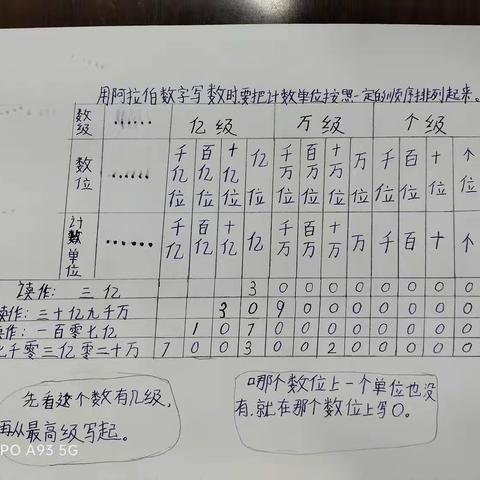 用阿拉伯数字写数时要把计数单位按照一定的顺序排列起来。
数级 …… 亿级 万级 个级
数位 …… 千亿位 百亿位 十亿位 亿位 千万位 百万位 十万位 万位 千位 百位 十位 个位
计数单位 …… 千亿 百亿 十亿 亿 千万 百万 十万 万 千 百 十 个
读作：三亿 3 0 0 0 0 0 0 0 0
读作：三十亿九千万 3 0 9 0 0 0 0 0 0 0
读作：一百零七亿 1 0 7 0 0 0 0 0 0 0 0
七千零三亿零二十万 7 0 0 3 0 0 2 0 0 0 0 0
先看这个数有几级，
再从最高级写起。
哪个数位上一个单位也没
有，就在那个数位上写0。
PO A93 5G